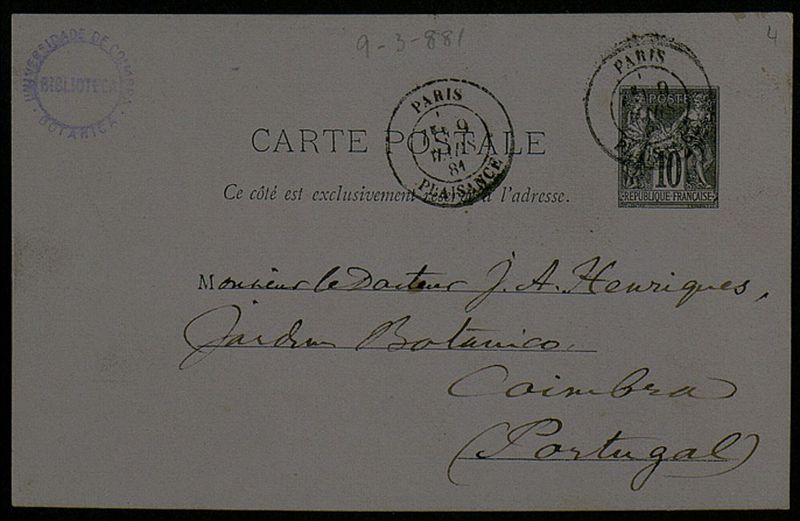 9-3-881
4
UNIVERSIDADE DE COIMBRA
BIBLIOTECA
BOTANICA
PARIS
9
MARS
81
PLAISANCE
PARIS
9
PLAISANCE
POSTES
10
REPUBLIQUE FRANÇAISE
CARTE POSTALE
Ce côté est exclusivement réservé à l'adresse.
Monsieur le Docteur J. A. Henriques,
Jardim Botanico.
Coimbra
(Portugal)